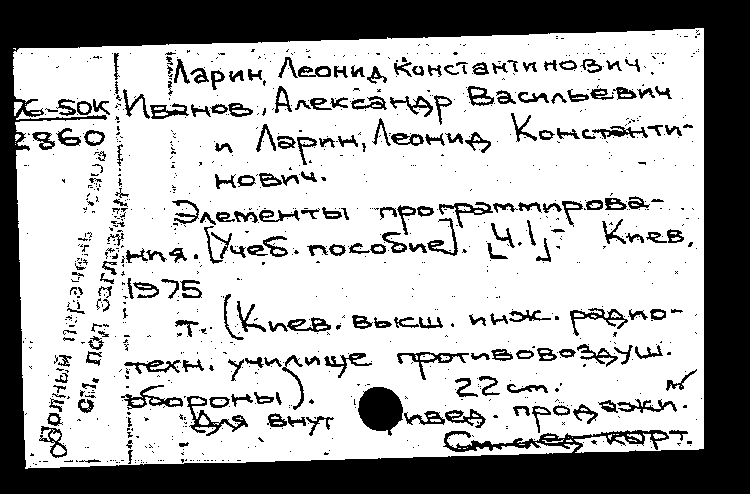 Ларин, Леонид Константинович.
76-50К
Иванов, Александр Васильевич
2860
и Ларин, Леонид Константи-
нович.
Элементы программирова-
ния. [Учеб. пособие]. [Ч.1]- Киев,
1975
т. (Киев. высш. инж. радио-
техн. училище противовоздуш.
обороны).
22 см.
Для внут ивед. продажи.
См. след. карт.
Полный перечень томов
см. под заглавием